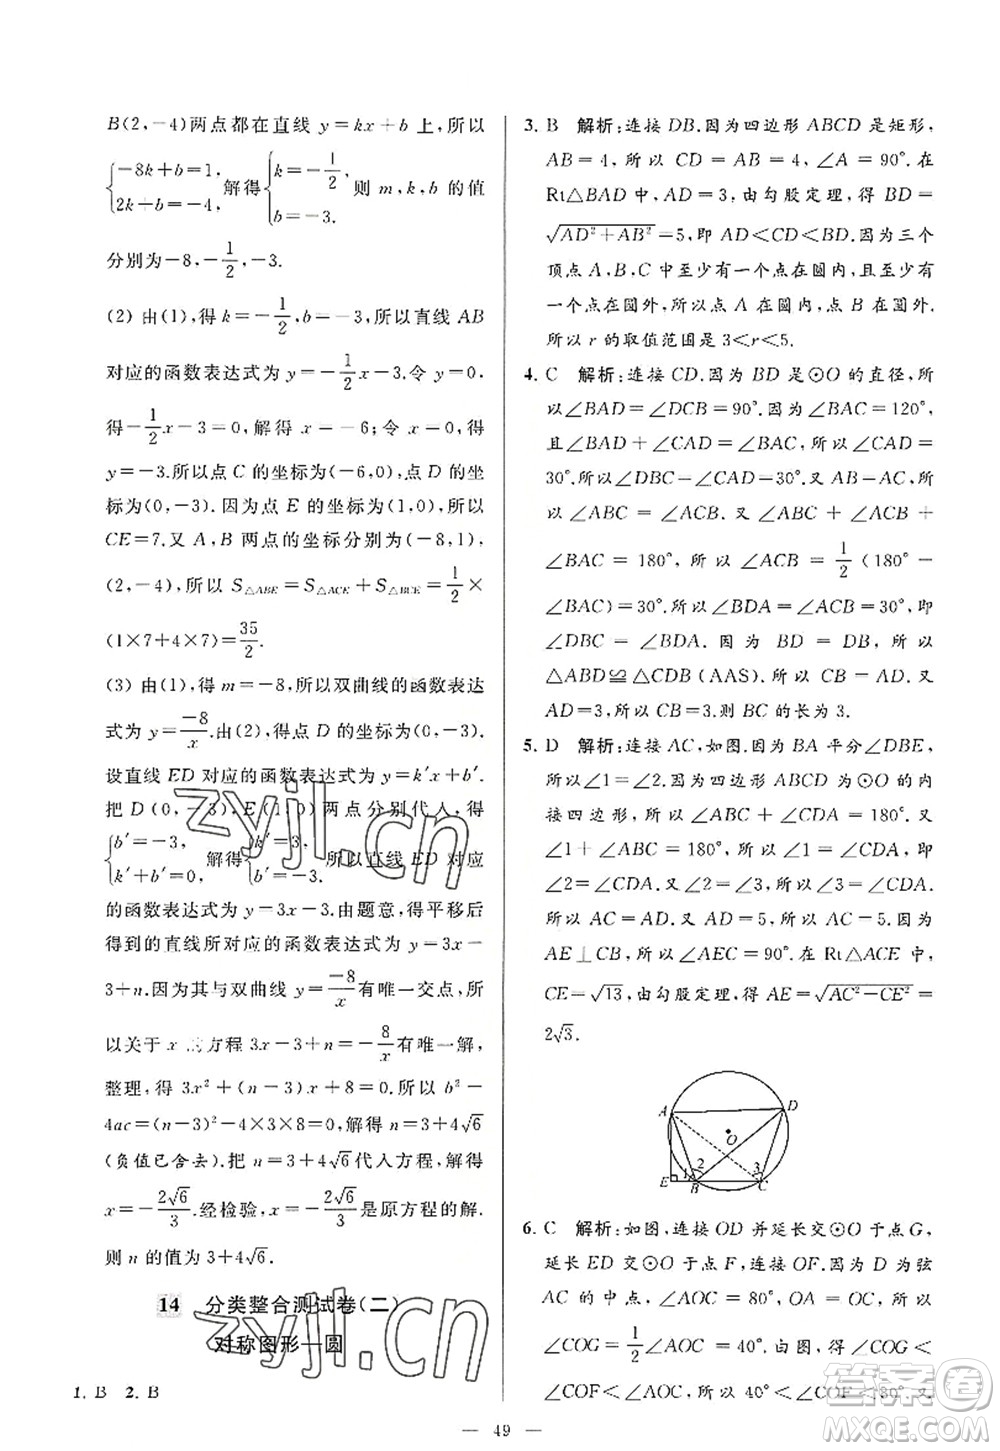 B(2,-4)两点都在直线 y=kx+b 上,所以
{-8k+b=1, 2k+b=-4, 解得 {k=-1/2, b=-3. 则 m,k,b 的值
分别为-8,-1/2,-3.
(2) 由(1),得 k=-1/2,b=-3,所以直线 AB
对应的函数表达式为 y=-1/2x-3.令 y=0,
得-1/2x-3=0,解得 x=-6;令 x=0,得
y=-3.所以点 C 的坐标为(-6,0),点 D 的坐
标为(0,-3).因为点 E 的坐标为(1,0),所以
CE=7.又 A,B 两点的坐标分别为(-8,1),
(2,-4),所以 S△ABE=S△ACE+S△BCE=1/2×
(1×7+4×7)=35/2.
(3) 由(1),得 m=-8,所以双曲线的函数表达
式为 y=-8/x.由(2),得点 D 的坐标为(0,-3).
设直线 ED 对应的函数表达式为 y=k′x+b′.
把 D(0,-3),E(1,0)两点分别代入,得
{b′=-3, k′+b′=0, 解得 {k′=3, b′=-3. 所以直线 ED 对应
的函数表达式为 y=3x-3.由题意,得平移后
得到的直线所对应的函数表达式为 y=3x-
3+n.因为其与双曲线 y=-8/x 有唯一交点,所
以关于 x 的方程 3x-3+n=-8/x 有唯一解.
整理,得 3x²+(n-3)x+8=0.所以 b²-
4ac=(n-3)²-4×3×8=0.所以 n=3+4√6
(负值已舍去).把 n=3+4√6代入方程,解得
x=-2√6/3.经检验,x=-2√6/3是原方程的解.
则 n 的值为 3+4√6.
14 分类整合测试卷(二)
对称图形—圆
1. B 2. B
3. B 解析:连接 DB.因为四边形 ABCD 是矩形,
AB=4,所以 CD=AB=4,∠A=90°.在
Rt△BAD 中,AD=3,由勾股定理,得 BD=
√AD²+AB²=5,即 AD<CD<BD.因为三个
顶点 A,B,C 中至少有一个点在圆内,且至少有
一个点在圆外,所以点 A 在圆内,点 B 在圆外.
所以 r 的取值范围是 3<r<5.
4. C 解析:连接 CD.因为 BD 是⊙O 的直径,所
以∠BAD=∠DCB=90°.因为∠BAC=120°,
且∠BAD+∠CAD=∠BAC,所以∠CAD=
30°.所以∠DBC=∠CAD=30°.又 AB=AC,
所以∠ABC=∠ACB.又∠ABC+∠ACB+
∠BAC=180°,所以∠ACB=1/2(180°-
∠BAC)=30°.所以∠BDA=∠ACB=30°,即
∠DBC=∠BDA.因为 BD=DB,所以
△ABD≌△CDB(AAS).所以 CB=AD.又
AD=3,所以 CB=3.则 BC 的长为 3.
5. D 解析:连接 AC,如图.因为 BA 平分∠DBE,
所以∠1=∠2.因为四边形 ABCD 为⊙O 的内
接四边形,所以∠ABC+∠CDA=180°.又
∠1+∠ABC=180°,所以∠1=∠CDA,即
∠2=∠CDA.又∠2=∠3,所以∠3=∠CDA.
所以 AC=AD.又 AD=5,所以 AC=5.因为
AE⊥CB,所以∠AEC=90°.在 Rt△ACE 中,
CE=√13,由勾股定理,得 AE=√AC²-CE²=
2√3.
A D O E 1 2 B 3 C
6. C 解析:如图,连接 OD 并延长交⊙O 于点 G,
延长 ED 交⊙O 于点 F,连接 OF.因为 D 为弦
AC 的中点,∠AOC=80°,OA=OC,所以
∠COG=1/2∠AOC=40°.又∠COG<
∠COF<∠AOC,所以 40°<∠COF<80°.又
— 49 —
zyjl.cn
zyjl.cn
答案圈
MXQE.COM